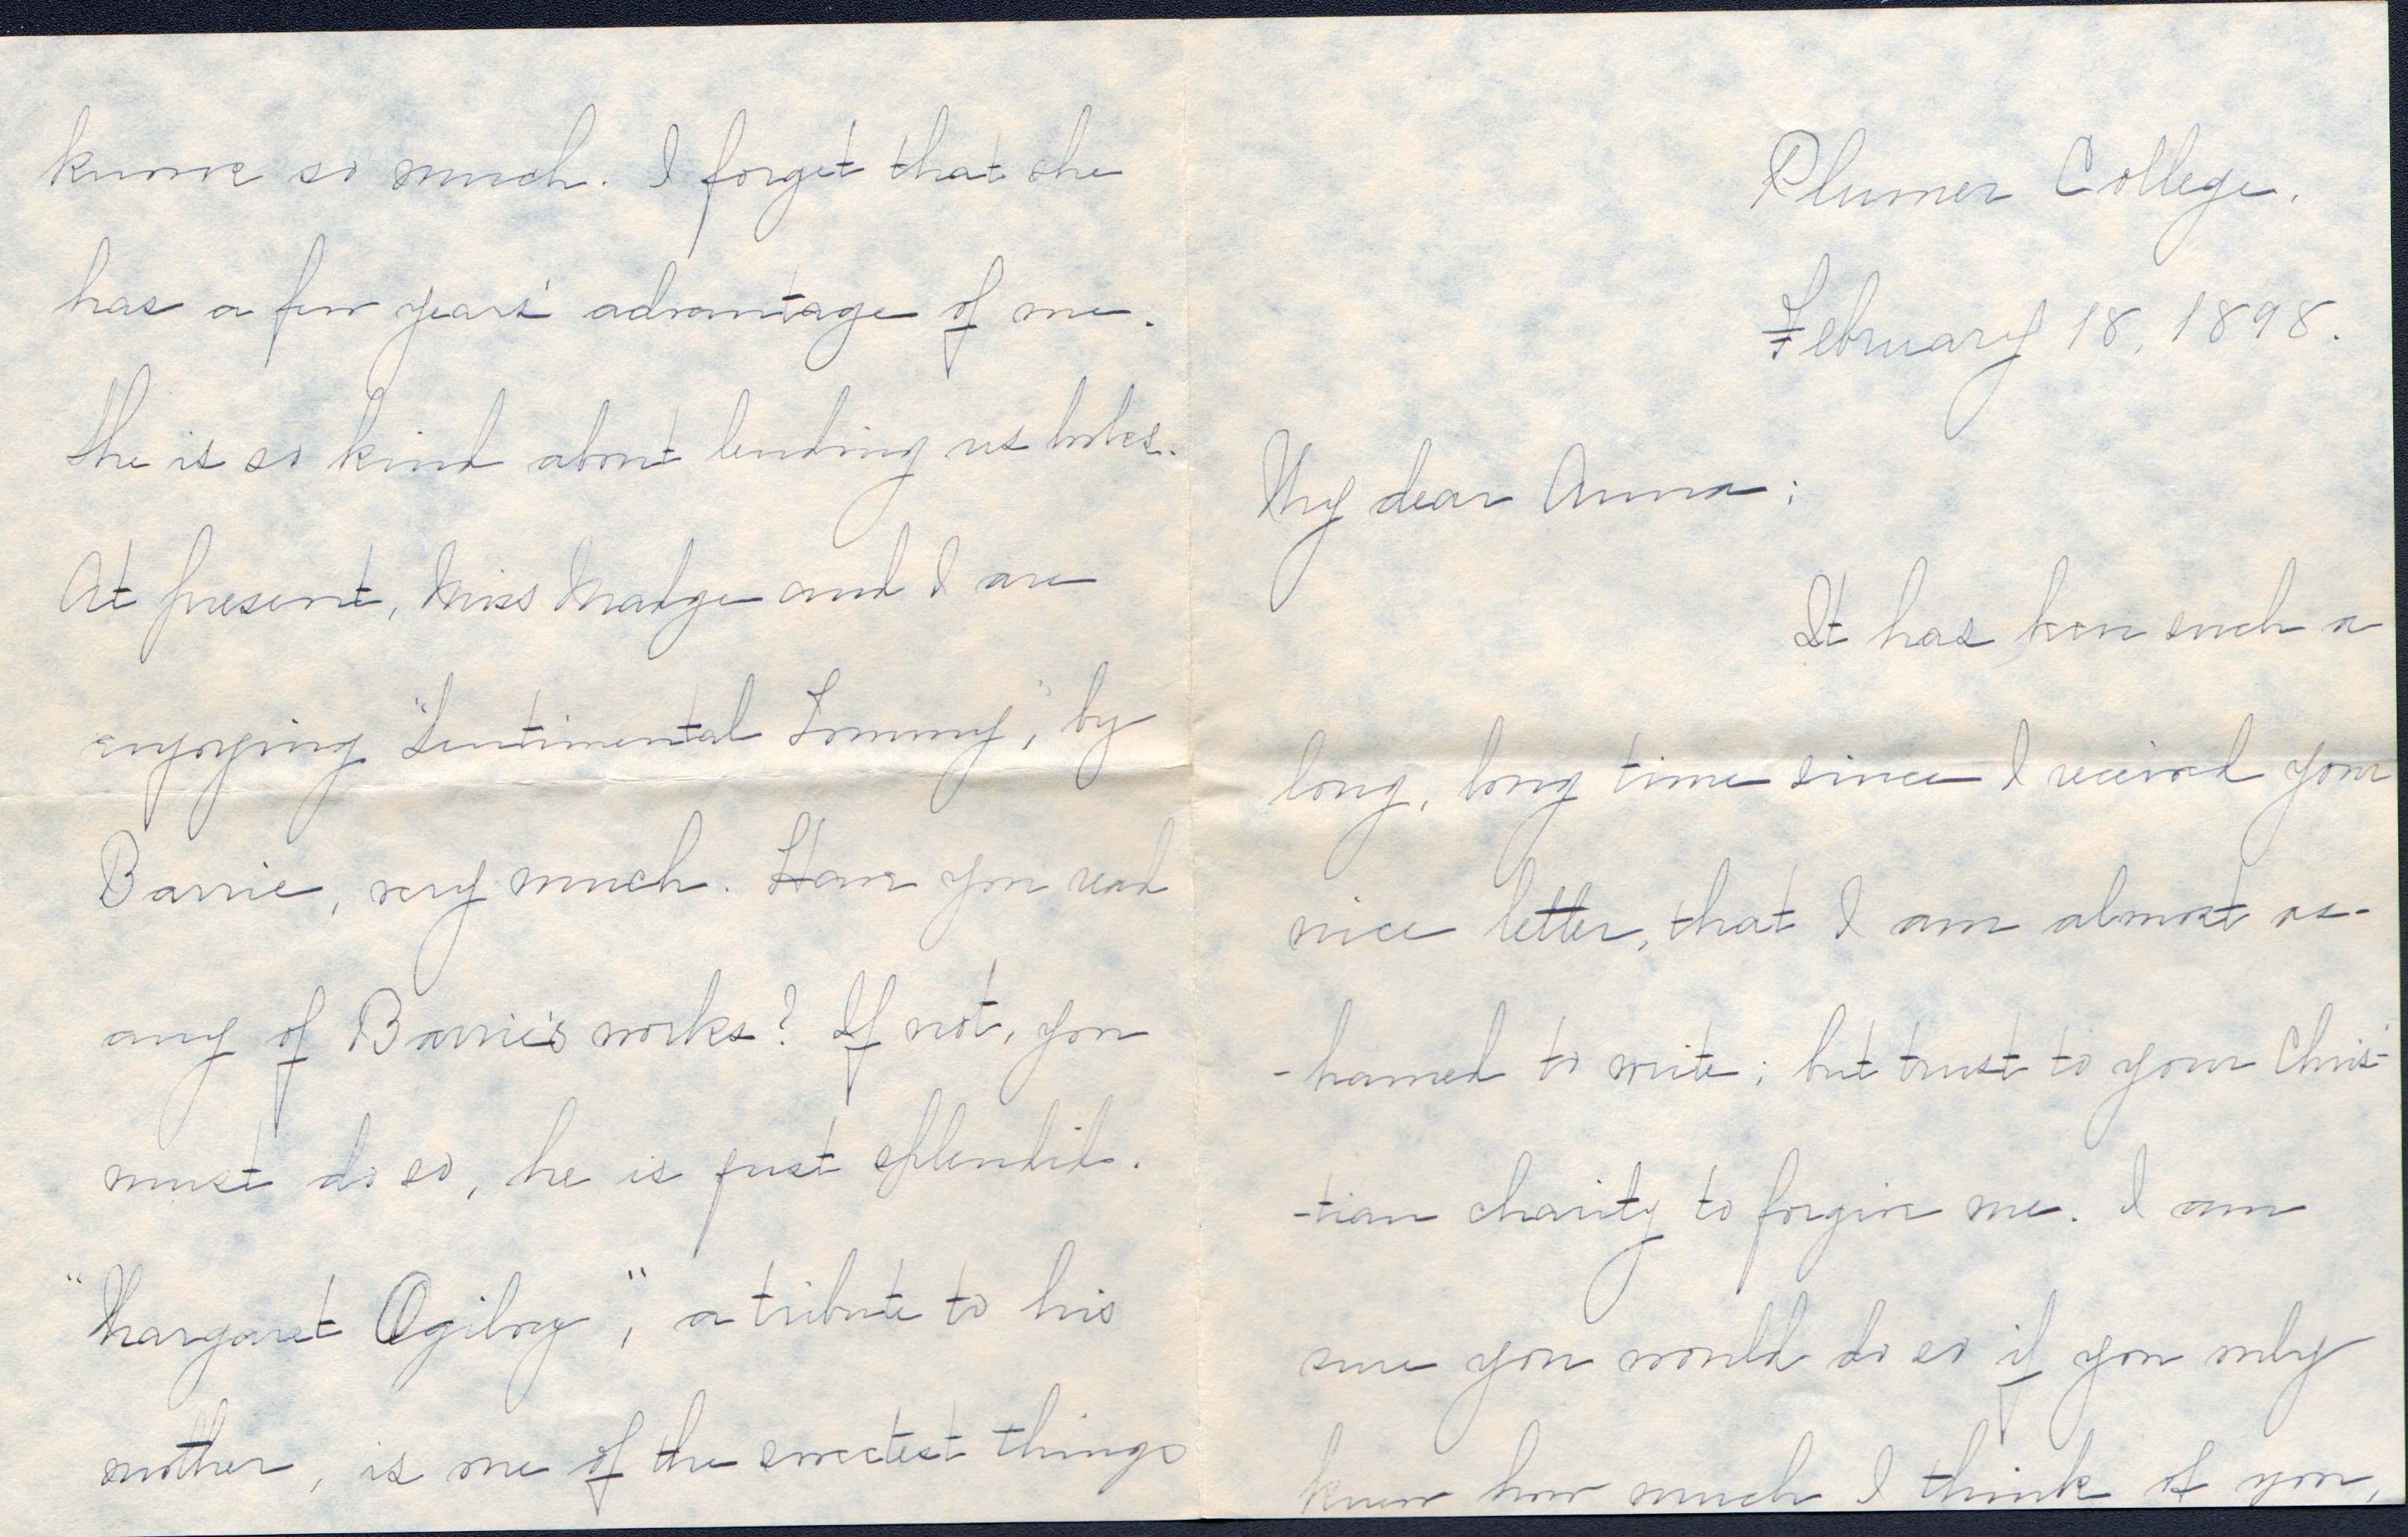 Plumer College.
February 18, 1898.
My dear Anna:
It has been such a
long, long time since I received your
nice letter, that I am almost as-
-hamed to write; but trust to your Chris-
-tian charity to forgive me. I am
sure you would do so if you only
knew how much I think of you,
knows so much. I forget that she
has a few years' advantage of me.
She is so kind about lending us books.
At present, Miss Madge and I are
enjoying "Sentimental Tommy", by
Barrie, very much. Have you read
any of Barrie's works? If not, you
must do so, he is just splendid.
"Margaret Ogilvy", a tribute to his
mother, is one of the sweetest things